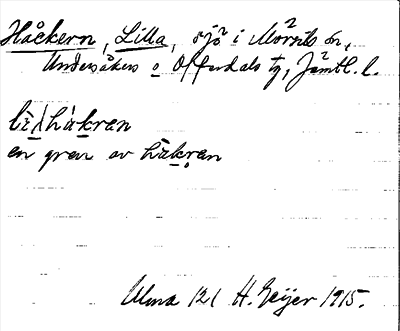 Håckern, Lilla, sjö i Mörsils sn,
Undersåkers o Offerdals tg, Jämtl. l.
håkran
en gren av håkran
Alma 121 H. Geijer 1915.